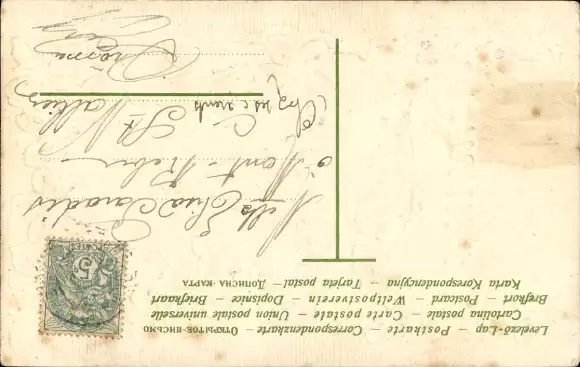 Levelező-Lap – Postkarte – Correspondenzkarte – ОТКРЫТОЕ-ПИСЬМО
Cartolina postale – Carte postale – Union postale universelle
Brefkort – Postcard – Weltpostverein – Dopisnice – Briefkaart
Karta Korespondencyjna – Tarjeta postal – ДОПИСНА-КАРТА
5
POSTES
Mlle Paradis
à Mont-
St Vallier
(chez ses parents)
Drôme